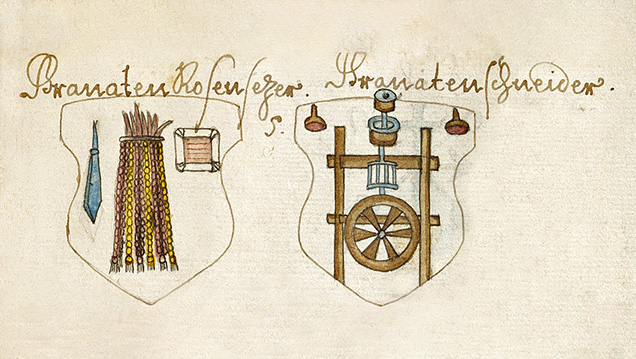 Granaten Rosensezer. Granatenschneider.
5.